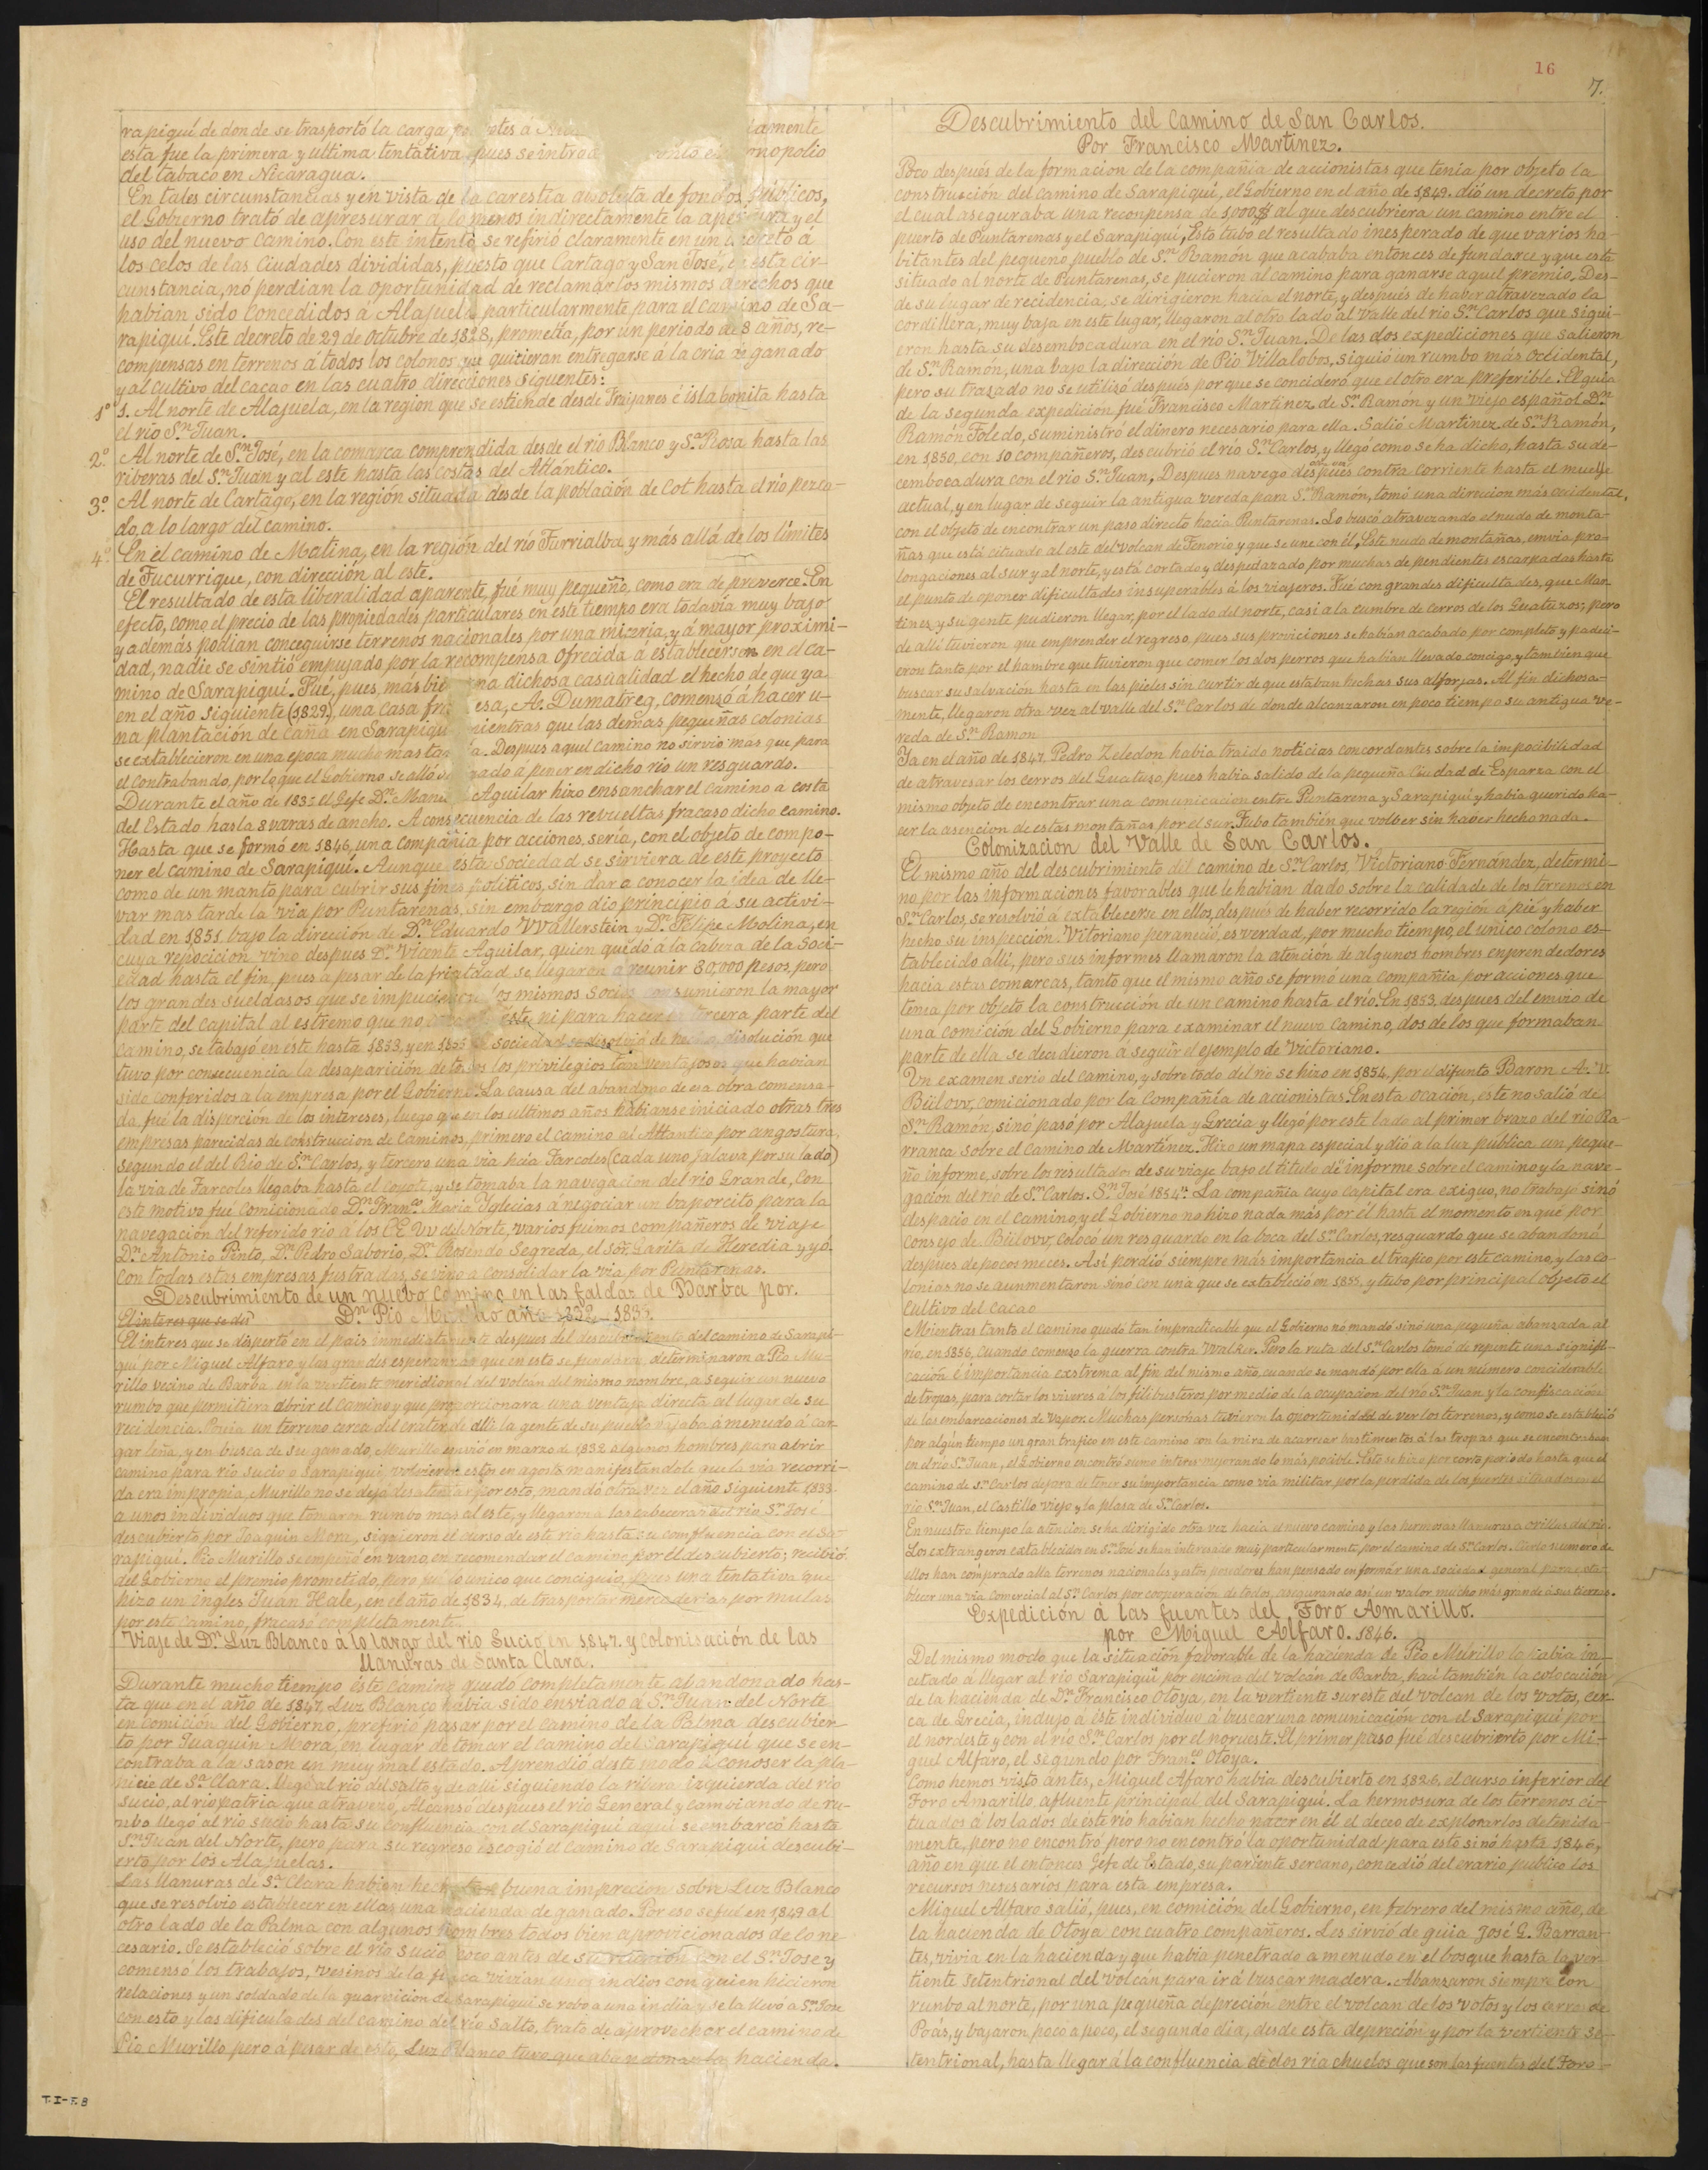 16
7.
rapiquí de donde se trasportó la carga
esta fue la primera y ultima tentativa pues se introd
del tabaco en Nicaragua.
En tales circunstancias y en vista de la carestia absoluta de fondos públicos,
el Gobierno trató de apresurar a lo menos indirectamente la apertura y el
uso del nuevo camino. Con este intento se refirió claramente en un decreto á
los celos de las ciudades divididas, puesto que Cartago y San José, en esta cir-
cunstancia, no perdian la oportunidad de reclamar los mismos derechos que
habian sido concedidos á Alajuela particularmente para el camino de Sa-
rapiquí. Este decreto de 29 de octubre de 1828, prometía, por un periodo de 8 años, re-
compensas en terrenos á todos los colonos que quisieran entregarse á la cria de ganado
y al cultivo del cacao en las cuatro direcciones siguentes:
1º 1. Al norte de Alajuela, en la region que se estiende desde Fraijanes é isla bonita hasta
el rio Sn Juan.
2º Al norte de Sn José, en la comarca comprendida desde el río Blanco y Sta Rosa hasta las
riberas del Sn Juan y al este hasta las costas del Atlántico.
3º Al norte de Cartago, en la región situada desde la población de Cot hasta el río pezca-
do, a lo largo del camino.
4º En el camino de Matina, en la región del río Turrialba y más allá de los límites
de Tucurrique, con dirección al este.
El resultado de esta liberalidad aparente, fué muy pequeño, como era de preverce. En
efecto, como el precio de las propiedades particulares en este tiempo era todavía muy bajo
y además podian conceguirse terrenos nacionales por una miceria, y á mayor proximi-
dad, nadie se sintió empujado por la recompensa ofrecida á establecerse en el ca-
mino de Sarapiquí. Fué, pues, más bie na dichosa casualidad el hecho de que ya
en el año siguiente (1829.) una casa fra esa, A. Dumatreg, comensó á hacer u-
na plantación de caña en Sarapiquí mientras que las demas pequeñas colonias
se establecieron en una epoca mucho mas ta a. Despues aquel camino no sirvió mas que para
el contrabando, por lo que el Gobierno se alló ado á poner en dicho rio un resguardo.
Durante el año de 183 el Gefe Dn Manu Aguilar hizo ensanchar el camino a costa
del Estado hasta 8 varas de ancho. A consecuencia de las revueltas fracaso dicho camino.
Hasta que se formó en 1846, una compañía por acciones seria, con el objeto de compo-
ner el camino de Sarapiquí. Aunque esta sociedad se sirviera de este proyecto
como de un manto para cubrir sus fines politicos, sin dar a conocer la idea de lle-
var mas tarde la via por Puntarenas, sin embargo dio principio a su activi-
dad en 1851 bajo la dirección de Dn Eduardo VVallerstein y Dn Felipe Molina, en
cuya reposicion vino despues Dn Vicente Aguilar, quien quedó a la cabeza de la soci-
edad hasta el fin, pues a pesar de la frialdad, se llegaron a reunir 80,000 pesos, pero
los grandes sueldasos que se impucieron los mismos socios consumieron la mayor
parte del capital al estremo que no este, ni para hacer la tercera parte del
camino, se tabajó en este hasta 1853, y en 1855 la sociedad se disolvió de hecho, disolución que
tuvo por consecuencia la desaparición de todos los privilegios tan ventajosos que habian
sido conferidos a la empresa por el Gobierno. La causa del abandono de esa obra comensa-
da fué la disperción de los intereses, luego que en los ultimos años habianse iniciado otras tres
empresas parecidas de construcion de caminos, primero el camino al Atlantico por angostura,
segundo el del Rio de Sn Carlos, y tercero una via hcia Tarcoles (cada uno jalava por su lado)
la via de Tarcoles llegaba hasta el coyote, y se tomaba la navegacion del rio Grande, Con
este motivo fué comicionado Dn Franco Maria Yglecias á negociar un baporcito para la
navegación del referido rio á los EE VV del Norte, varios fuimos compañeros de viaje
Dn Antonio Pinto, Dn Pedro Saborio, Dn Rosendo Segreda, el señr Garita de Heredia y yó.
Con todas estas empresas fustradas, se vino a consolidar la vía por Puntarenas.
Descubrimiento de un nuevo camino en las faldas de Barba por.
El interes que se des Dn Pio año 1832 1833.
El interes que se dispertó en el pais inmediatamente despues del descubrimiento del camino de Sarapi-
qui por Miguel Alfaro, y las grandes esperanzas que en esto se fundaron determinaron a Pio Mu-
rillo vecino de Barba, en la vertiente meridional del volcán del mismo nombre, a seguir un nuevo
rumbo que permitiera abrir el camino y que proporcionara una ventaja directa al lugar de su
recidencia. Poseia un terreno cerca del crater de alli la gente de su pueblo bajaba á menudo á car-
gar leña, y en busca de su ganado, Murillo envió en marzo de 1832 algunos hombres para abrir
camino para rio sucio o Sarapiqui, volvieron estos en agosto manifestandole que la via recorri-
da era impropia, Murillo no se dejó desalentar por esto, mandó otra vez el año siguiente 1833
a unos individuos que tomaron rumbo mas al este, y llegaron a las cabeceras del rio Sn José
descubierto por Joaquin Mora, siguieron el curso de este río hasta su confluencia con el Sa-
rapiquí. Pio Murillo se empeñó en vano, en recomendar el camino por él descubierto; recibió
del Gobierno el premio prometido, pero fue lo unico que conciguió, pues una tentativa que
hizo un ingles Juan Hale, en el año de 1834, de trasportar mercaderias por mulas
por este camino, fracasó completamente.
Viaje de Dn Luz Blanco á lo largo del río Sucio en 1847. y colonisación de las
llanuras de Santa Clara.
Durante mucho tiempo este camino quedo completamente abandonado has-
ta que en el año de 1847, Luz Blanco habia sido enviado a Sn Juan del Norte
en comición del Gobierno, prefirió pasar por el camino de la Palma descubier-
to por Juaquin Mora, en lugar de tomar el camino del Sarapiquí que se en-
contraba a la sason en muy mal estado. Aprendió deste modo á conoser la pla-
nicie de Sta Clara, llegó al rio del salto y de alli siguiendo la rivera izquierda del rio
sucio, al rio patria que atravezó, Alcansó despues el río General y cambiando de ru-
mbo llegó al rio sucio hasta su confluencia con el Sarapiqui aqui se embarcó hasta
Sn Juan del Norte, pero para su regreso escogió el camino de Sarapiqui descubi-
erto por los Alajuelas.
Las llanuras de Sta Clara habian hecho tan buena imprecion sobre Luz Blanco
que se resolvio establecer en ellas una hacienda de ganado. Por eso se fue en 1,849 al
otro lado de la Palma con algunos hombres todos bien aprovicionados de lo ne-
cesario. Se estableció sobre el río sucio poco antes de su reunion con el Sn Jose y
comensó los trabajos, vesinos de la finca vivian unos indios con quien hicieron
relaciones y un soldado de la guarnicion de Sarapiqui se robo a una india y se la llevó a Sn Jose
con esto y las dificultades del camino del río Salto, trato de aprovechar el camino de
Pio Murillo pero á pesar de esto, Luz Blanco tuvo que abandonar la hacienda.
Descubrimiento del Camino de San Carlos.
Por Francisco Martinez.
Poco después de la formacion de la compañia de accionistas que tenia por objeto la
construcción del camino de Sarapiquí, el Gobierno en el año de 1849. dió un decreto por
el cual aseguraba una reconpensa de 1,000 $ al que descubriera un camino entre el
puerto de Puntarenas y el Sarapiquí, Esto tubo el resultado inesperado de que varios ha-
bitantes del pequeno pueblo de Sn Ramón que acababa entonces de fundarce y que esta
situado al norte de Puntarenas, se pucieron al camino para ganarse aquel premio. Des-
de su lugar de recidencia, se dirigieron hacia el norte, y después de haver atravezado la
cordillera, muy baja en este lugar, llegaron al otro lado al valle del rio Sn Carlos que sigui-
eron hasta su desembocadura en el rio Sn Juan. De las dos expediciones que salieron
de Sn Ramón, una bajo la dirección de Pio Villalobos, siguió un rumbo más occidental,
pero su trazado no se utilisó después por que se concideró que el otro era preferible. El guia
de la segunda expedición fué Francisco Martinez de Sn Ramón y un viejo español Dn
Ramón Toledo, suministró el dinero necesario para ella. Salió Martinez de Sn Ramón,
en 1850, con 10 compañeros, descubrió el río Sn Carlos, y llegó como se ha dicho, hasta su de-
cembocadura con el rio Sn Juan, Despues navego después contra corriente hasta el muelle
actual, y en lugar de seguir la antigua vereda para Sn Ramón, tomó una direccion más occidental,
con el objeto de encontrar un paso directo hacia Puntarenas. Lo buscó atravezando el nudo de monta-
ñas que está cituado al este del volcan de Tenorio y que se une con él, Este nudo de montañas, envia pro-
longaciones al sur y al norte, y está cortado y despedazado por muchas de pendientes escarpadas hasta
el punto de oponer dificultades insuperables á los viajeros. Fué con grandes dificultades, que Mar-
tinez y su gente pudieron llegar, por el lado del norte, casi a la cumbre de cerros de los Guatuzos; pero
de allí tuvieron que emprender el regreso, pues sus proviciones se habían acabado por completo y padeci-
eron tanto por el hambre que tuvieron que comer los dos perros que habian llevado concigo, y tambien que
buscar su salvación hasta en las pieles sin curtir de que estaban hechas sus alforjas. Al fin dichosa-
mente, llegaron otra vez al valle del Sn Carlos de donde alcanzaron en poco tiempo su antigua ve-
reda de Sn Ramon
Ya en el año de 1847. Pedro Zeledon habia traido noticias concordantes sobre la impocibilidad
de atravesar los cerros del Guatuso, pues habia salido de la pequeña Ciudad de Esparza con el
mismo objeto de encontrar una comunicacion entre Puntarena y Sarapiquí y habia querido ha-
cer la asencion de estas montañas por el sur. Tubo también que volber sin haver hecho nada.
Colonizacion del Valle de San Carlos.
El mismo año del descubrimiento del camino de Sn Carlos, Victoriano Fernández, determi-
no por las informaciones favorables que le habian dado sobre la calidad de los terrenos en
Sn Carlos, se resolvió á establecerse en ellos, después de haber recorrido la región á pié y haber
hecho su inspección. Vitoriano peraneció, es verdad, por mucho tiempo, el unico colono es-
tablecido allí, pero sus informes llamaron la atención de algunos hombres enprendedores
hacia estas comarcas, tanto que el mismo año se formó una compañia por acciones que
tenia por objeto la construcción de un camino hasta el rio. En 1853. despues del envio de
una comición del Gobierno para examinar el nuevo camino, dos de los que formaban
parte de ella se decidieron á seguir el ejemplo de Victoriano.
Un examen serio del camino, y sobre todo del rio se hizo en 1854, por el difunto Baron A. V.
Bülovv, comicionado por la compañia de accionistas. En esta ocación, este no salió de
Sn Ramón, sino pasó por Alajuela y Grecia y llegó por este lado al primer brazo del rio Ba-
rranca sobre el camino de Martínez. Hizo un mapa especial y dió a la luz pública un peque-
ño informe, sobre los resultados de su viaje bajo el titulo de informe sobre el camino y la nave-
gacion del rio de Sn Carlos. Sn José 1854". La compañia cuyo capital era exiguo, no trabajó sinó
despacio en el camino, y el Gobierno no hizo nada más por él hasta el momento en que por
consejo de Bülovv, colocó un resguardo en la boca del Sn Carlos, resguardo que se abandonó
despues de pocos meces. Así perdió siempre más importancia el trafico por este camino, y las co-
lonias no se aunmentaron sinó con una que se estableció en 1855, y tubo por principal objeto el
cultivo del cacao
Mientras tanto el camino quedó tan impracticable que el Gobierno nó mandó sinó una pequeña abanzada al
rio, en 1856, cuando comenzo la guerra contra Walker. Pero la ruta del Sn Carlos tomó de repente una signifi-
cación é importancia exstrema al fin del mismo año, cuando se mandó por ella á un número conciderable
de tropas, para cortar los viveres á los filibusteros por medio de la ocupacion del rio Sn Juan y la confiscación
de las embarcaciones de vapor. Muchas personas tuvieron la oportunidad de ver los terrenos, y como se estableció
por algún tiempo un gran trafico en este camino con la mira de acarrear bastimentos á las tropas que se encontraban
en el rio Sn Juan, el Gobierno encontró sumo interes mejorando lo más pocible. Esto se hizo por corto periodo hasta que el
camino de Sn Carlos dejara de tener su importancia como vía militar por la perdida de los fuertes situados en el
rio Sn Juan, el Castillo viejo y la plasa de Sn Carlos.
En nuestro tiempo la atencion se ha dirigido otra vez hacia el nuevo camino y las hermosas llanuras a orillas del rio.
Los extrangeros establecidos en Sn José se han interesado muy particularmente, por el camino de Sn Carlos. Cierto numero de
ellos han comprado alla terrenos nacionales y estos poseedores han pensado en formar una sociedad general para esta-
blecer una via comercial al Sn Carlos por cooperación de todos, asegurando así un valor mucho más grande á sus tierras.
Expedición á las fuentes del Toro Amarillo.
por Miguel Alfaro. 1846.
Del mismo modo que la situación favorable de la hacienda de Pio Murillo lo habia in-
citado á llegar al rio Sarapiqui por encima del volcan de Barba, haci también la colocación
de la hacienda de Dn Francisco Otoya, en la vertiente sureste del volcan de los votos, cer-
ca de Grecia, indujo a este individuo á buscar una comunicación con el Sarapiqui por
el nordeste y con el rio Sn Carlos por el norueste. El primer paso fué descubrierto por Mi-
guel Alfaro, el segundo por Franco Otoya.
Como hemos visto antes, Miguel Afaro habia descubierto en 1826. el curso inferior del
Toro Amarillo, afluente principal del Sarapiqui. La hermosura de los terrenos ci-
tuados á los lados de este río habian hecho nacer en él el deceo de explorarlos detenida-
mente, pero no encontró, pero no encontró la oportunidad para esto sinó hasta 1846,
año en que el entonces Gefe de Estado, su pariente sercano, concedió del erario publico los
recursos nesesarios para esta empresa.
Miguel Alfaro salió, pues, en comición del Gobierno, en febrero del mismo año, de
la hacienda de Otoya con cuatro compañeros. Les sirvió de guia José G. Barran-
tes, vivia en la hacienda y que habia penetrado a menudo en el bosque hasta la ver-
tiente setentrional del volcán para ir á buscar madera. Abanzaron siempre con
runbo al norte, por una pequeña depreción entre el volcan de los votos y los cerros de
Poás, y bajaron poco a poco, el segundo día, desde esta depreción y por la vertiente se-
tentrional, hasta llegar á la confluencia de dos riachuelos que son las fuentes del Toro
T.I-F.8